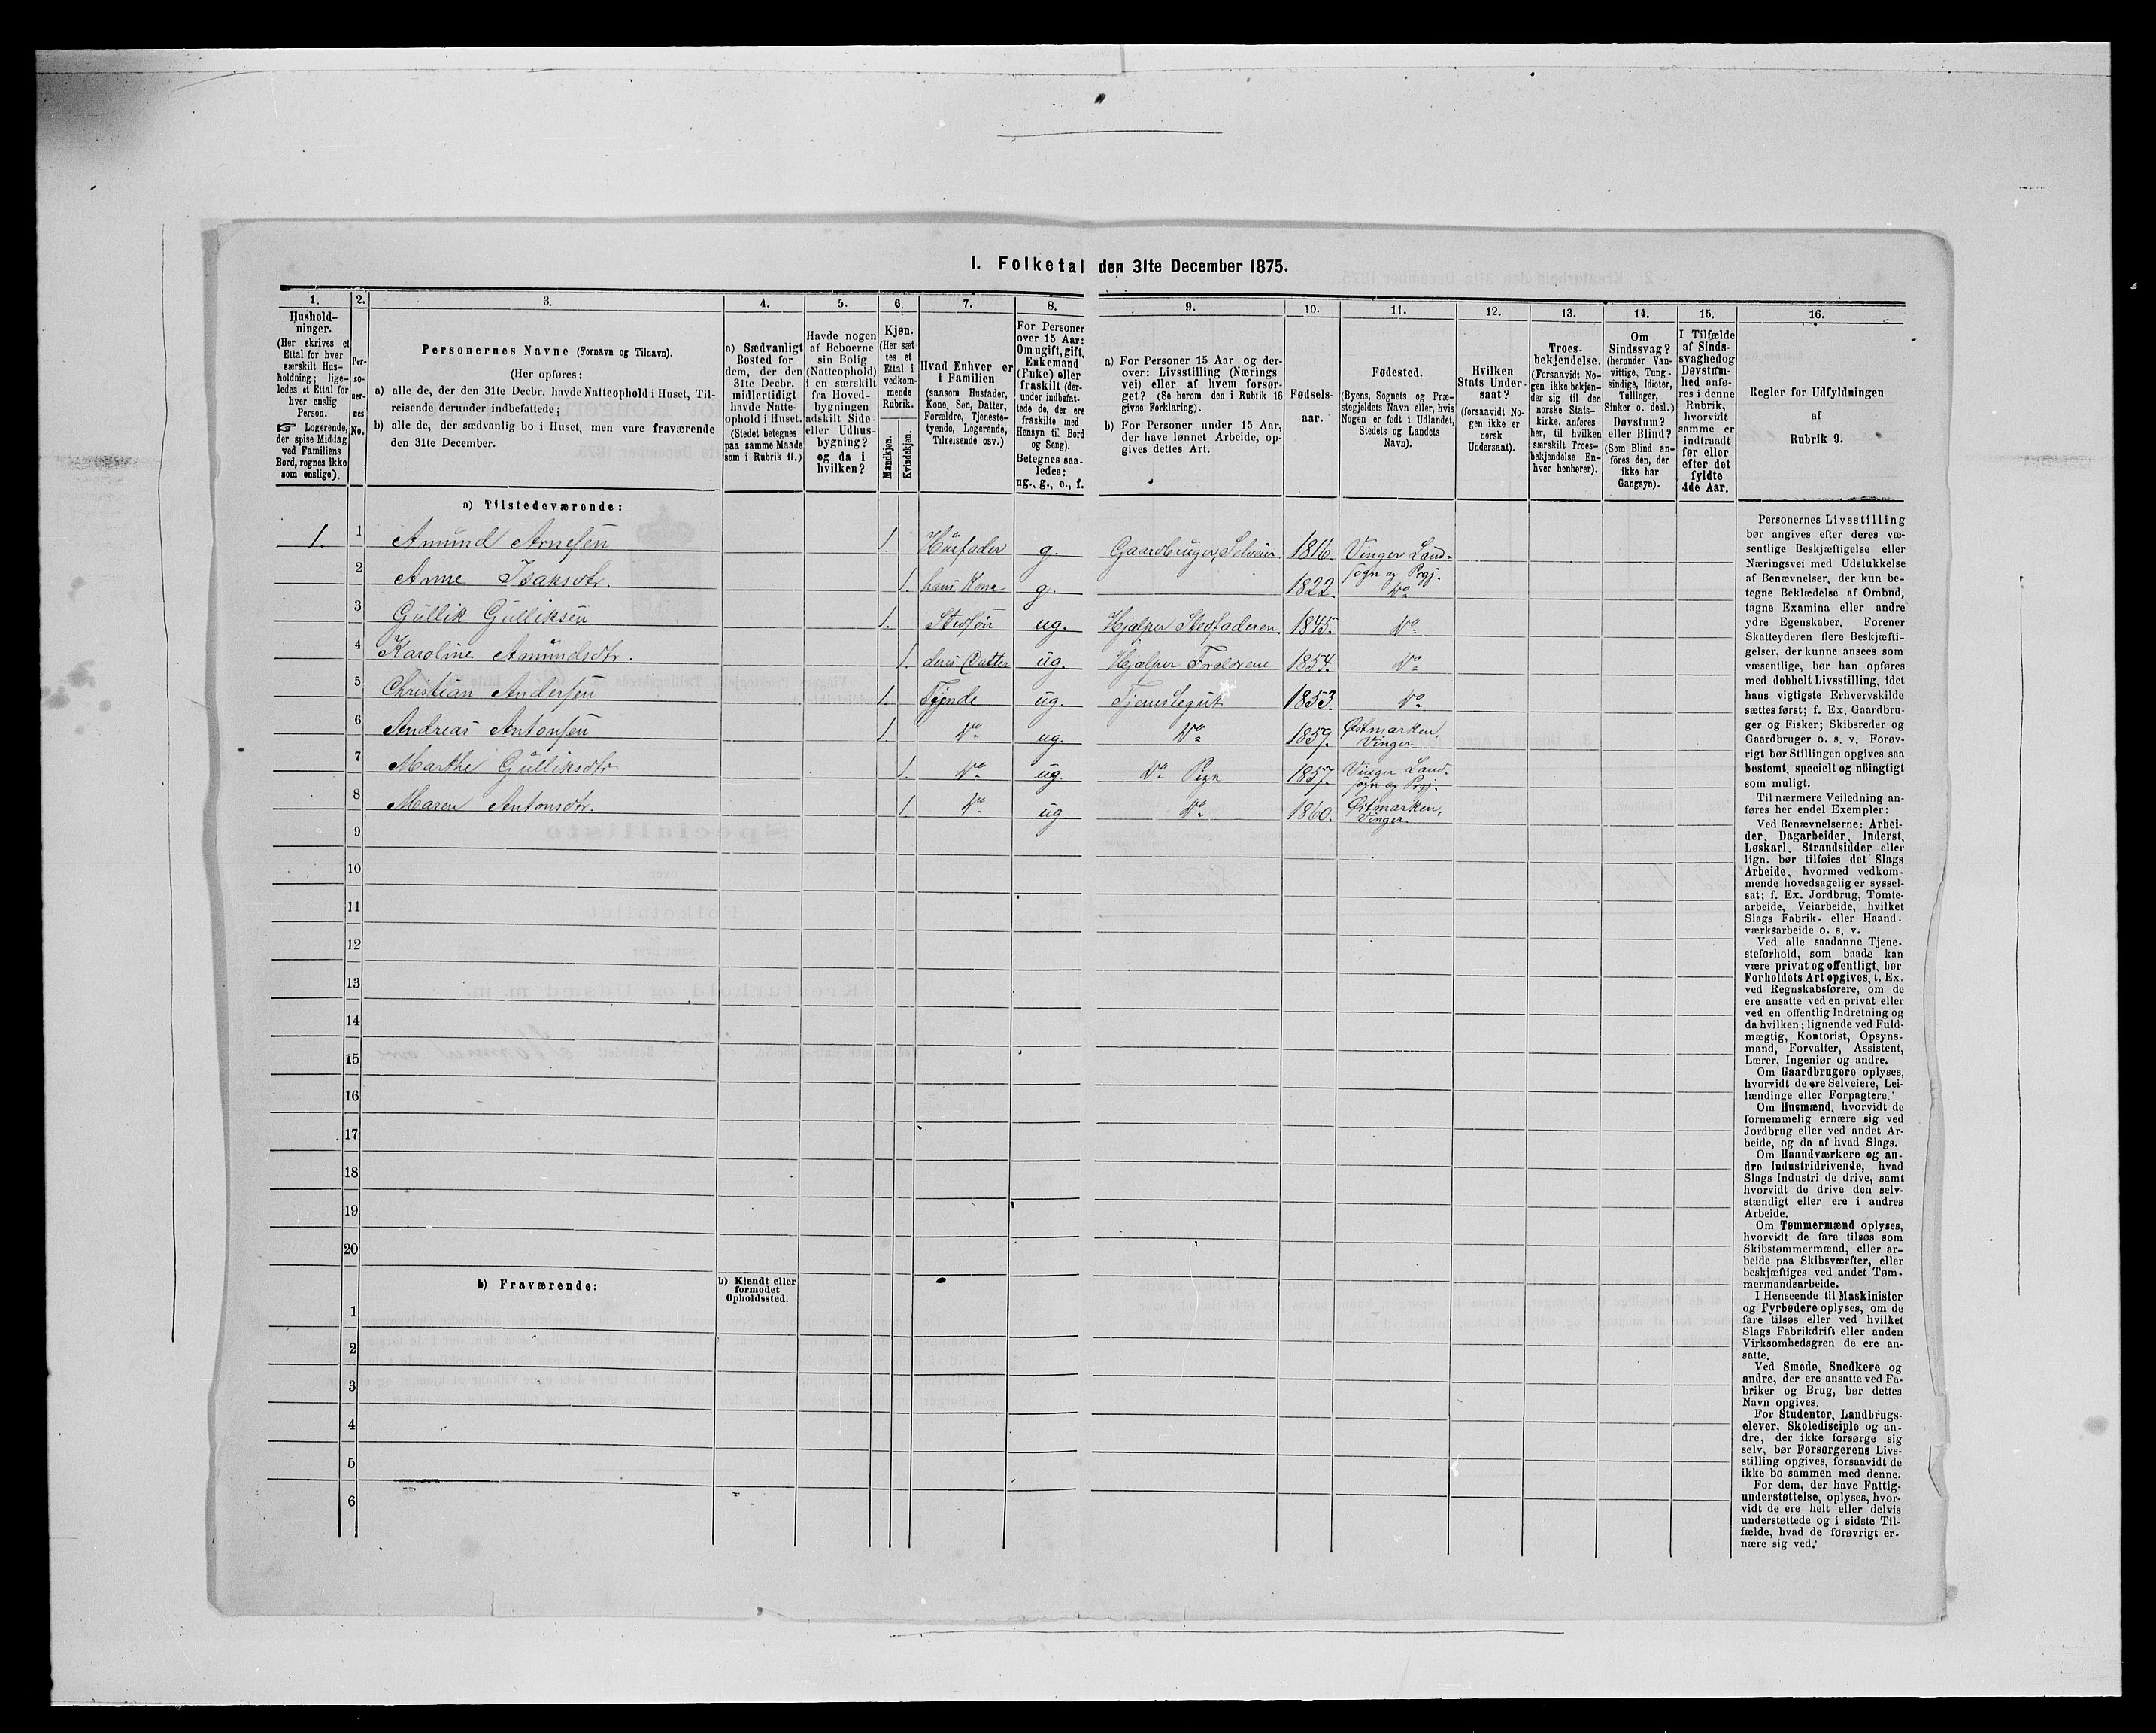 1. Folketal den 31te December 1875.
1. 2. 3. 4. 5. 6. 7. 8. 9. 10. 11. 12. 13. 14. 15. 16.
Hushold-
ninger.
(Her skrives et
Ettal for hver
særskilt Hus-
holdning; lige-
ledes et Ettal for
hver enslig
Person.
☞ Logerende,
der spise Middag
ved Familiens
Bord, regnes ikke
som enslige).
Per-
so-
ner-
nes
No.
Personernes Navne (Fornavn og Tilnavn).
(Her opføres:
a) alle de, der den 31te Decbr. havde Natteophold i Huset, Til-
reisende derunder indbefattede;
b) alle de, der sædvanlig bo i Huset, men vare fraværende
den 31te December.
a) Sædvanligt
Bosted for
dem, der den
31te Decbr.
midlertidigt
havde Natte-
ophold i Huset.
(Stedet betegnes
paa samme Maade
som i Rubrik 11.)
Havde nogen
af Beboerne
sin Bolig
(Natteophold)
i en særskilt
fra Hoved-
bygningen
adskilt Side-
eller Udhus-
bygning?
og da i
hvilken?
Kjøn.
(Her sæt-
tes et
Ettal i
vedkom-
mende
Rubrik.
Mandkjøn.
Kvindekjøn.
Hvad Enhver er
i Familien
(saasom Husfader,
Kone, Søn, Datter,
Forældre, Tjeneste-
tyende, Logerende,
Tilreisende osv.)
For Personer
over 15 Aar:
Om ugift, gift,
Enkemand
(Enke) eller
fraskilt (der-
under indbefat-
tede de, der ere
fraskilte med
Hensyn til Bord
og Seng).
Betegnes saa-
ledes:
ug., g., e., f.
a) For Personer 15 Aar og der-
over: Livsstilling (Nærings
vei) eller af hvem forsør-
get? (Se herom den i Rubrik 16
givne Forklaring).
b) For Personer under 15 Aar,
der have lønnet Arbeide, op-
gives dettes Art.
Fødsels-
aar.
Fødested.
(Byens, Sognets og Præ-
stegjeldets Navn eller, hvis
Nogen er født i Udlandet,
Stedets og Landets
Navn).
Hvilken
Stats Under-
saat?
(forsaavidt No-
gen ikke er
norsk
Undersaat).
Troes-
bekjendelse.
(Forsaavidt No-
gen ikke bekjen-
der sig til den
norske Stats-
kirke, anføres
her, til hvilken
særskilt Troes-
bekjendelse En-
hver henhører).
Om
Sindssvag?
(herunder Van-
vittige, Tung-
sindige, Idioter,
Tullinger,
Sinker o. desl.)
Døvstum?
eller Blind?
(Som Blind an-
føres den, der
ikke har
Gangsyn).
I Tilfælde
af Sinds-
svaghed og
Døvstum-
hed anfø-
res i denne
Rubrik,
hvorvidt
samme er
indtraadt
før eller
efter det
fyldte
4de Aar.
Regler for Udfyldningen
af
Rubrik 9.
a) Tilstedeværende:
1. 1 Amund Arnesen 1. Husfader g. Gaardbruger, Selveier 1816. Vinger Land-
sogn og Prgj.
2 Anne Isaksdtr. 1. hans Kone g. 1822. Do
3 Gullik Gulliksen 1. Stedsøn ug. Hjælper Stedfaderen. 1845. Do
4 Karoline Amundsdtr. 1. deres Datter ug. Hjælper Forældrene 1854. Do
5 Christian Andersen 1. Tjende ug. Tjenestegut 1853. Do
6 Andreas Antonsen 1. Do ug. Do 1859. Østmarken,
Vinger
7 Marthe Gulliksdtr 1. Do ug. Do Pige 1857. Vinger Land-
sogn og Prgj.
8 Maren Antonsdtr. 1. Do ug. Do 1860. Østmarken,
Vinger
9
10
11
12
13
14
15
16
17
18
19
20
b) Fraværende:
b) Kjendt eller
formodet
Opholdssted.
1
2
3
4
5
6
Personernes Livsstilling
bør angives efter deres væ-
sentlige Beskjæftigelse eller
Næringsvei med Udelukkelse
af Benævnelser, der kun be-
tegne Beklædelse af Ombud,
tagne Examina eller andre
ydre Egenskaber. Forener
Skatteyderen flere Beskjæfti-
gelser, der kunne ansees som
væsentlige, bør han opføres
med dobbelt Livsstilling, idet
hans vigtigste Erhvervskilde
sættes først; f. Ex. Gaardbru-
ger og Fisker; Skibsreder og
Gaardbruger o. s. v. Forøv-
rigt bør Stillingen opgives saa
bestemt, specielt og nöiagtigt
som muligt.
Til nærmere Veiledning an-
føres her endel Exempler:
Ved Benævnelserne: Arbei-
der, Dagarbeider, Inderst,
Løskarl, Strandsidder eller
lign. bør tilføies det Slags
Arbeide, hvormed vedkom-
mende hovedsagelig er syssel-
sat; f. Ex. Jordbrug, Tomte-
arbeide, Veiarbeide, hvilket
Slags Fabrik- eller Haand-
værksarbeide o. s. v.
Ved alle saadanne Tjene-
steforhold, som baade kan
være privat og offentligt, bør
Forholdets Art opgives, t. Ex.
ved Regnskabsførere, om de
ere ansatte ved en privat eller
ved en offentlig Indretning og
da hvilken; lignende ved Fuld-
mægtig, Kontorist, Opsyns-
mand, Forvalter, Assistent,
Lærer, Ingeniør og andre.
Om Gaardbrugere oplyses,
hvorvidt de ere Selveiere, Lei-
lændinge eller Forpagtere.
Om Husmænd, hvorvidt de
fornemmelig ernære sig ved
Jordbrug eller ved andet Ar-
beide, og da af hvad Slags.
Om Haandværkere og an-
dre Industridrivende, hvad
Slags Industri de drive, samt
hvorvidt de drive den selv-
stændigt eller ere i andres
Arbeide.
Om Tømmermænd oplyses,
hvorvidt de fare tilsøs som
Skibstømmermænd, eller ar-
beide paa Skibsværfter, eller
beskjæftiges ved andet Tøm-
mermandsarbeide.
I Henseende til Maskinister
og Fyrbødere oplyses, om de
fare tilsøs eller ved hvilket
Slags Fabrikdrift eller anden
Virksomhedsgren de ere an-
satte.
Ved Smede, Snedkere og
andre, der ere ansatte ved Fa-
briker og Brug, bør dettes
Navn opgives.
For Studenter, Landbrugs-
elever, Skoledisciple og an-
dre, der ikke forsørge sig
selv, bør Forsørgerens Livs-
stilling opgives, forsaavidt de
ikke bo sammen med denne.
For dem, der have Fattig-
understøttelse, oplyses, hvor-
vidt de ere helt eller delvis
understøttede og i sidste Til-
fælde, hvad de forøvrigt er-
nære sig ved.